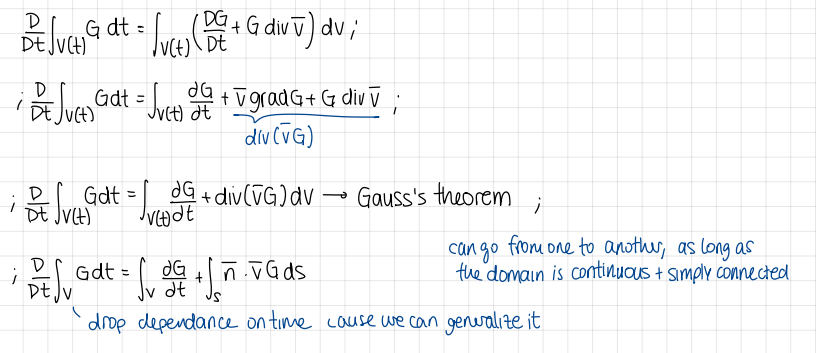 D/Dt ∫V(t) G dt = ∫V(t) (DG/Dt + G div v̅) dv ;
; D/Dt ∫V(t) G dt = ∫V(t) ∂G/∂t + v̅ grad G + G div v̅ ;
div(v̅G)
; D/Dt ∫V(t) G dt = ∫V(t) ∂G/∂t + div(v̅G) dV → Gauss's theorem ;
can go from one to another, as long as
the domain is continuous + simply connected
; D/Dt ∫V G dt = ∫V ∂G/∂t + ∫S n̅ · v̅ G ds
drop dependance on time cause we can generalize it